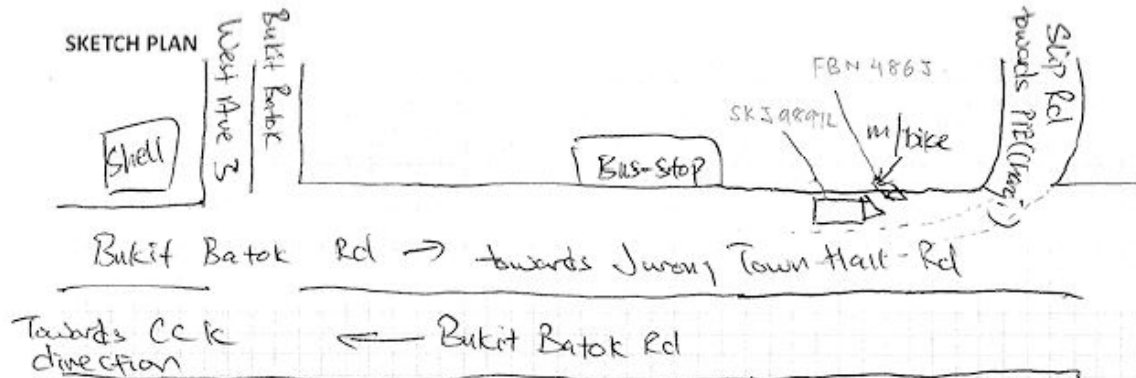 SKETCH PLAN
West Ave 3
Bukit Batok
Shell
Bus-stop
FBN 486J
m/bike
Slip Rd
towards PIE (Changi)
Bukit Batok Rd → towards Jurong Town Hall Rd
Towards CCK
direction
← Bukit Batok Rd